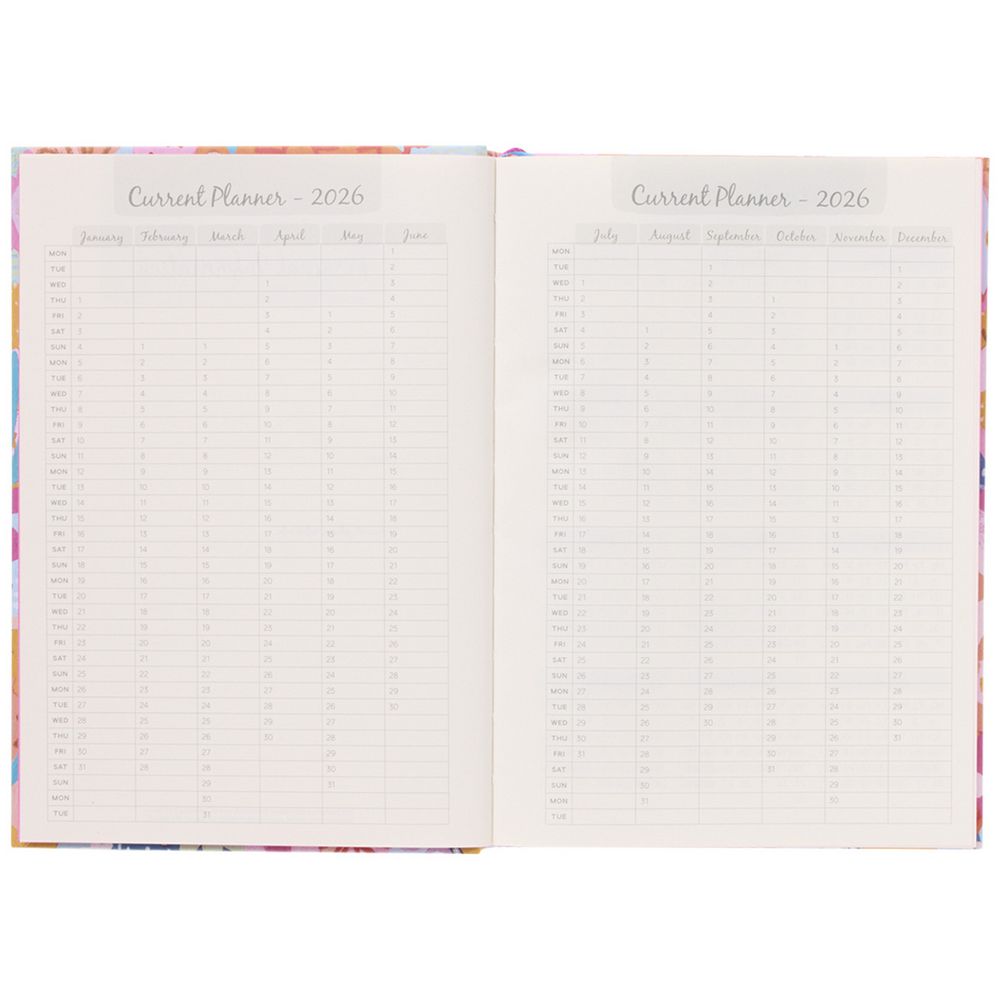 Current Planner - 2026
January February March April May June
MON 1
TUE 2
WED 1 3
THU 1 2 4
FRI 2 3 1 5
SAT 3 4 2 6
SUN 4 1 1 5 3 7
MON 5 2 2 6 4 8
TUE 6 3 3 7 5 9
WED 7 4 4 8 6 10
THU 8 5 5 9 7 11
FRI 9 6 6 10 8 12
SAT 10 7 7 11 9 13
SUN 11 8 8 12 10 14
MON 12 9 9 13 11 15
TUE 13 10 10 14 12 16
WED 14 11 11 15 13 17
THU 15 12 12 16 14 18
FRI 16 13 13 17 15 19
SAT 17 14 14 18 16 20
SUN 18 15 15 19 17 21
MON 19 16 16 20 18 22
TUE 20 17 17 21 19 23
WED 21 18 18 22 20 24
THU 22 19 19 23 21 25
FRI 23 20 20 24 22 26
SAT 24 21 21 25 23 27
SUN 25 22 22 26 24 28
MON 26 23 23 27 25 29
TUE 27 24 24 28 26 30
WED 28 25 25 29 27
THU 29 26 26 30 28
FRI 30 27 27 29
SAT 31 28 28 30
SUN 29 31
MON 30
TUE 31
Current Planner - 2026
July August September October November December
MON
TUE 1 1
WED 1 2 2
THU 2 3 1 3
FRI 3 4 2 4
SAT 4 1 5 3 5
SUN 5 2 6 4 1 6
MON 6 3 7 5 2 7
TUE 7 4 8 6 3 8
WED 8 5 9 7 4 9
THU 9 6 10 8 5 10
FRI 10 7 11 9 6 11
SAT 11 8 12 10 7 12
SUN 12 9 13 11 8 13
MON 13 10 14 12 9 14
TUE 14 11 15 13 10 15
WED 15 12 16 14 11 16
THU 16 13 17 15 12 17
FRI 17 14 18 16 13 18
SAT 18 15 19 17 14 19
SUN 19 16 20 18 15 20
MON 20 17 21 19 16 21
TUE 21 18 22 20 17 22
WED 22 19 23 21 18 23
THU 23 20 24 22 19 24
FRI 24 21 25 23 20 25
SAT 25 22 26 24 21 26
SUN 26 23 27 25 22 27
MON 27 24 28 26 23 28
TUE 28 25 29 27 24 29
WED 29 26 30 28 25 30
THU 30 27 29 26 31
FRI 31 28 30 27
SAT 29 31 28
SUN 30 29
MON 31 30
TUE